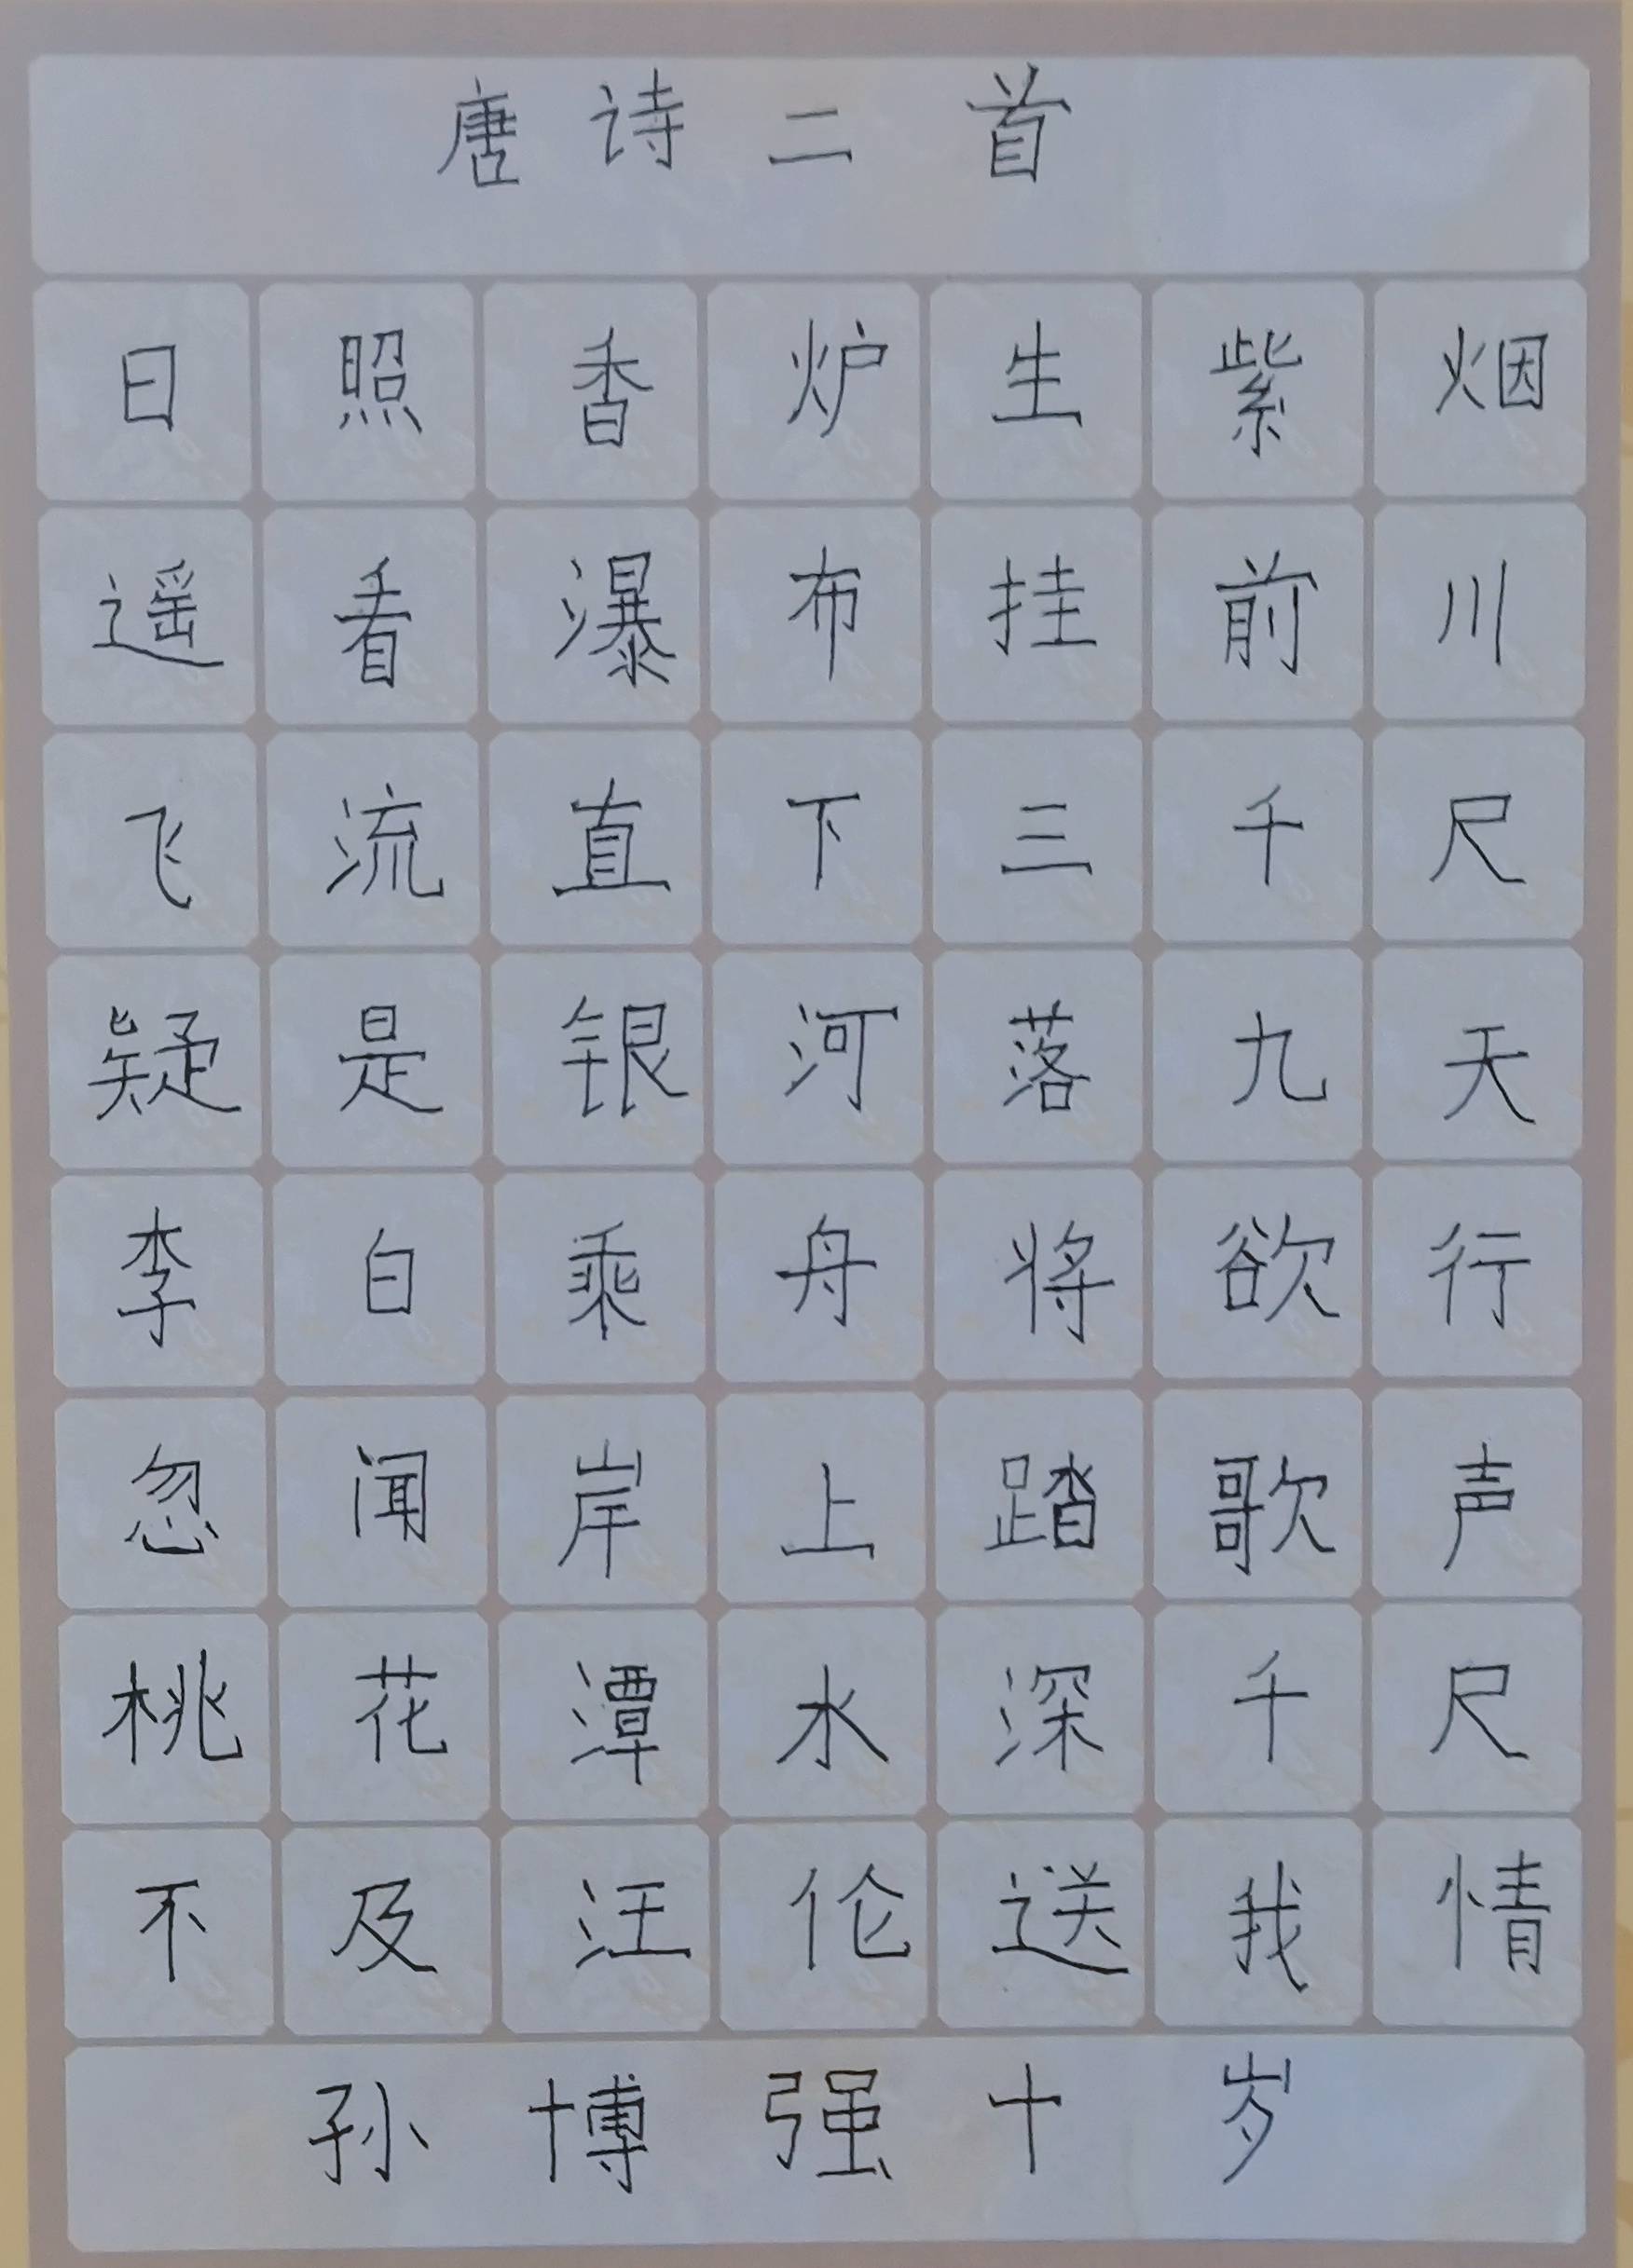 唐诗二首
日照香炉生紫烟
遥看瀑布挂前川
飞流直下三千尺
疑是银河落九天
李白乘舟将欲行
忽闻岸上踏歌声
桃花潭水深千尺
不及汪伦送我情
孙博强十岁